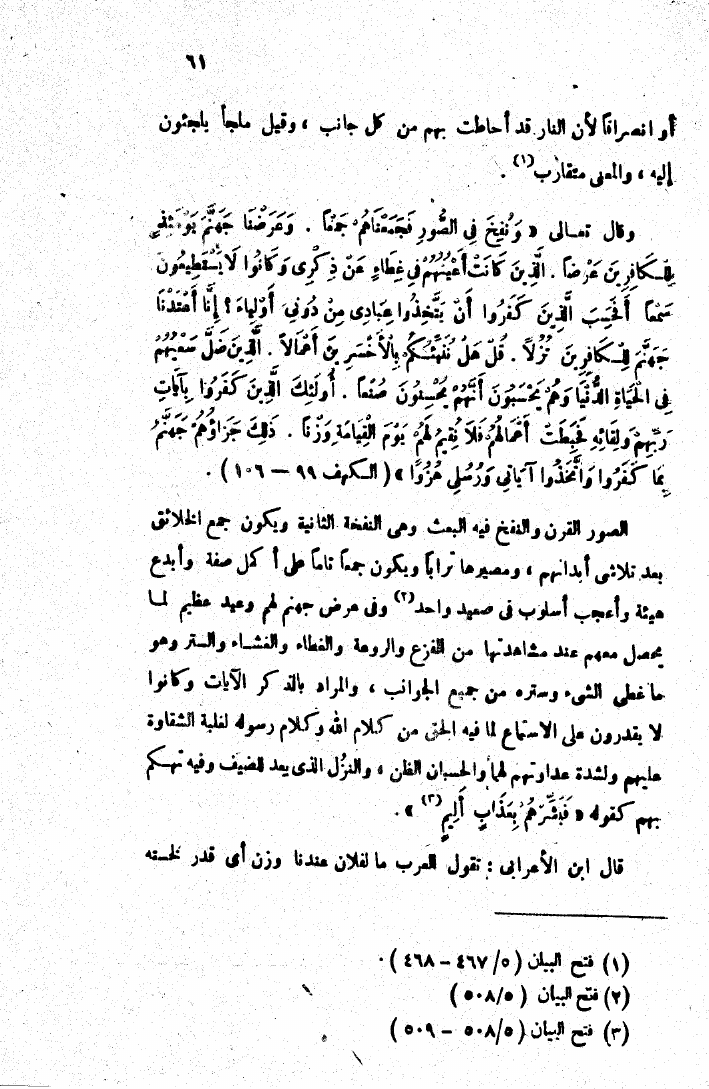 ٦١
أو انصرافاً لأن النار قد أحاطت بهم من كل جانب ، وقيل ملجأ يلجئون
إليه ، والمعنى متقارب(١) .
وقال تعـالى « وَنُفِخَ فِي الصُّورِ فَجَمَعْنَاهُمْ جَمْعًا . وَعَرَضْنَا جَهَنَّمَ يَوْمَئِذٍ
لِلْـكَافِرِينَ عَرْضًا . الَّذِينَ كَانَتْ أَعْيُنُهُمْ فِي غِطَاءٍ عَنْ ذِكْرِى وَكَانُوا لَا يَسْتَطِيعُونَ
سَمْعًا أَفَحَسِبَ الَّذِينَ كَفَرُوا أَنْ يَتَّخِذُوا عِبَادِى مِنْ دُونِىَ أَوْلِيَاءَ؟ إِنَّا أَعْتَدْنَا
جَهَنَّمَ لِلْـكَافِرِينَ نُزُلاً . قُلْ هَلْ نُنَبِّئُـكُمْ بِالْأَخْسَرِينَ أَعْمَالاً . الَّذِينَ ضَلَّ سَعْيُهُمْ
فِى الْحَيَاةِ الدُّنْيَا وَهُمْ يَحْسَبُونَ أَنَّهُمْ يُحْسِنُونَ صُنْعًا . أُولَئِكَ الَّذِينَ كَفَرُوا بِآيَاتِ
رَبِّهِمْ وَلِقَائِهِ فَحَبِطَتْ أَعْمَالُهُمْ فَلَا نُقِيمُ لَهُمْ يَوْمَ الْقِيَامَةِ وَزْنًا . ذَلِكَ جَزَاؤُهُمْ جَهَنَّمُ
بِمَا كَفَرُوا وَاتَّخَذُوا آيَاتِي وَرُسُلِي هُزُوًا » ( الـكهف ٩٩ — ١٠٦ ) .
الصور القرن والنفخ فيه البعث وهى النفخة الثانية ويكون جمع الخلائق
بعد تلاشى أبدانهم ، ومصيرها تراباً ويكون جمعاً تاماً على أكمل صفة وأبدع
هيئة وأعجب أسلوب فى صعيد واحد(٢) وفى عرض جهنم لهم وعيد عظيم لمـا
يحصل معهم عند مشاهدتها من الفزع والروعة والغطاء والغشـاء والستر وهو
ما غطى الشىء وستره من جميع الجوانب ، والمراد بالذكر الآيات وكانوا
لا يقدرون على الاستماع لما فيه الحق من كـلام الله وكـلام رسوله لغلبة الشقاوة
عليهم ولشدة عداوتهم لهما والحسبان الظن ، والنزُل الذى يعد للضيف وفيه تهـكم
بهم كقوله « فَبَشِّرْهُمْ بِعَذَابٍ أَلِيمٍ(٣) » .
قال ابن الأعرابى : تقول العرب ما لفلان عندنا وزن أى قدر لخسته
(١) فتح البيان (٥/ ٤٦٧ – ٤٦٨ ) .
(٢) فتح البيان ( ٥/ ٥٠٨ )
(٣) فتح البيان (٥/ ٥٠٨ – ٥٠٩ )